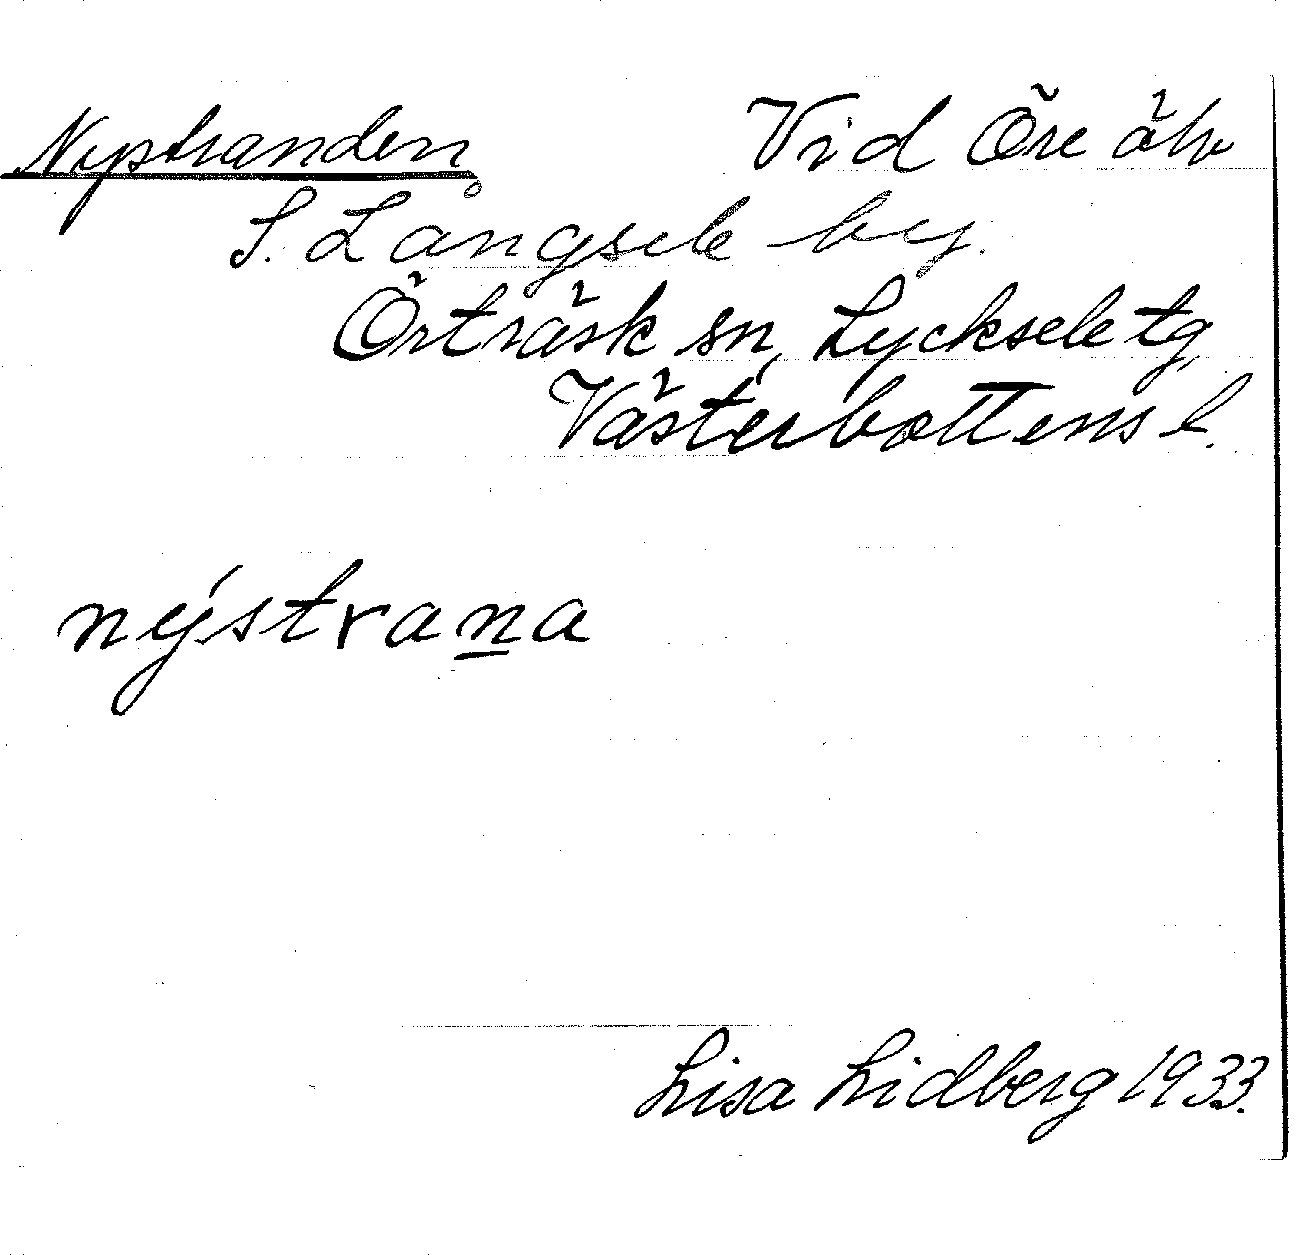 Nystranden Vid Öre älv
S. Långsele by.
Örträsk sn, Lycksele tg
Västerbottens l.
nýstrana
Lisa Lidberg 1933.